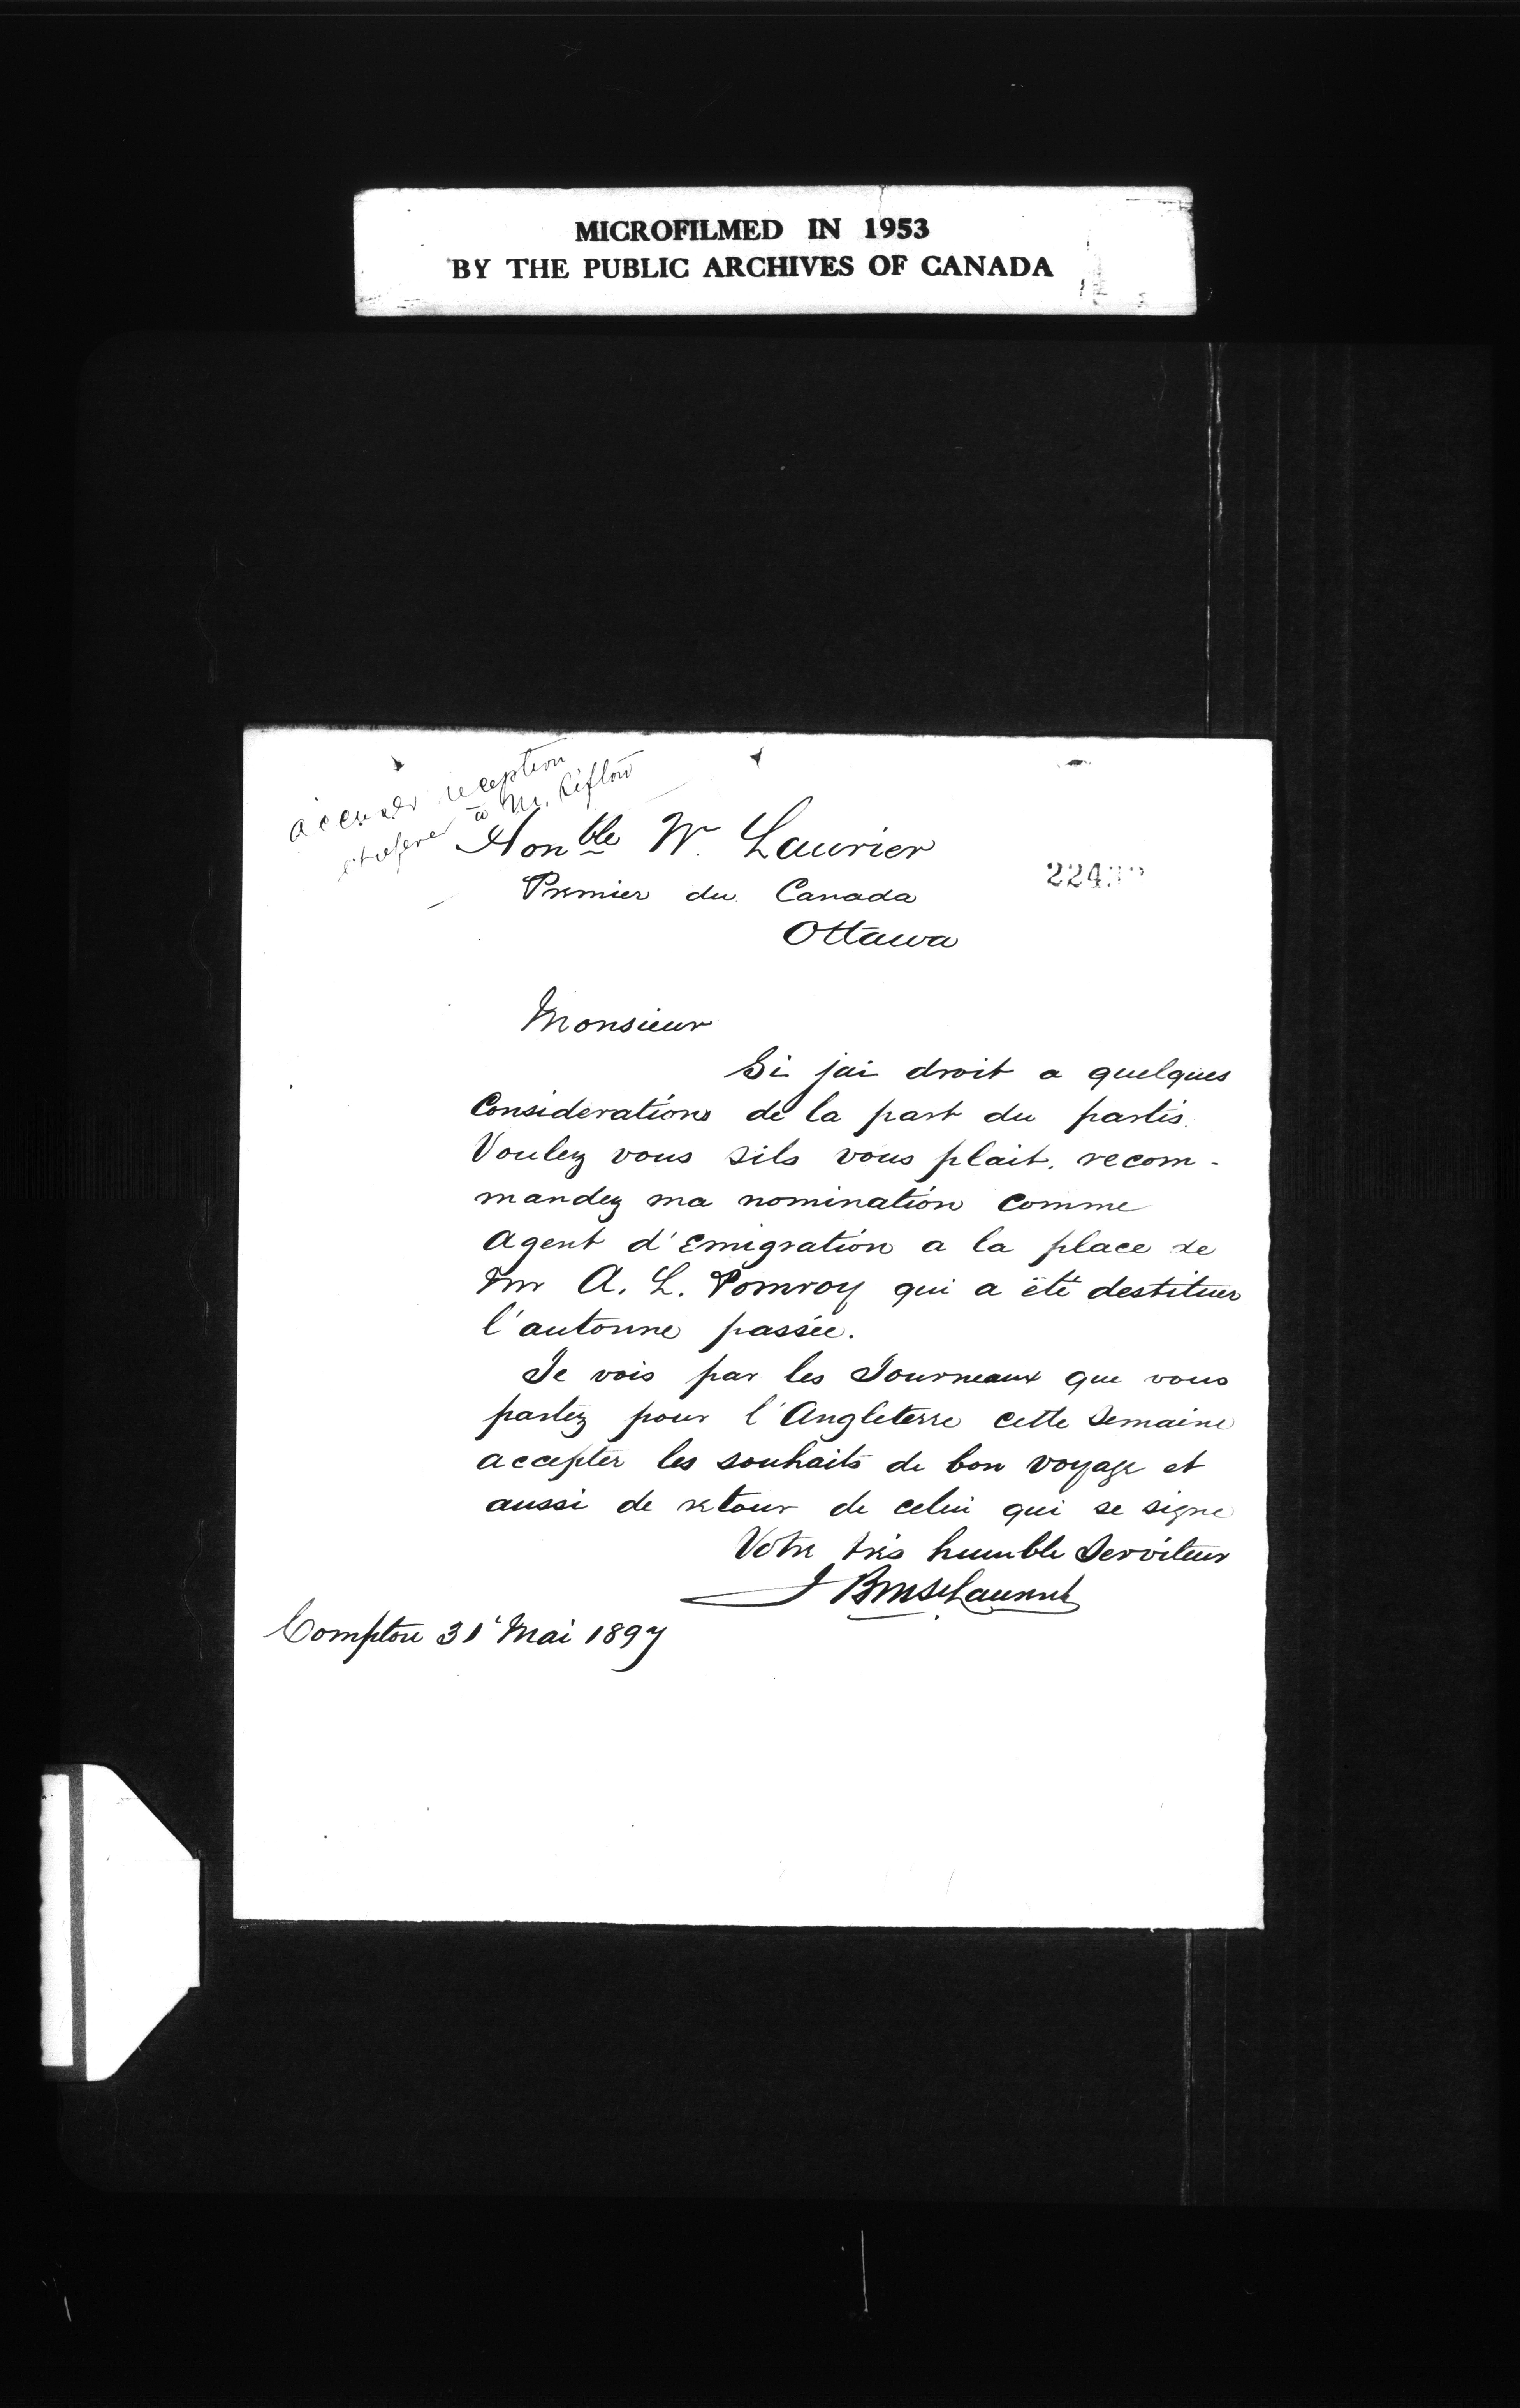 MICROFILMED IN 1953
BY THE PUBLIC ARCHIVES OF CANADA
accuser reception
et referer à Mr. Sifton
Honble W. Laurier
Premier du Canada
Ottawa
Monsieur
Si jai droit a quelques
Considerations de la part du partis.
Voulez vous sils vous plait, recom-
mandez ma nomination Comme
Agent d'Emigration a la place de
Mr A. L. Pomroy qui a été destituer
l'autonne passée.
Je vois par les Journeaux que vous
partez pour l'Angleterre cette Semaine
accepter les souhaits de bon voyage et
aussi de retour de celui qui se signe
Votre très humble Serviteur
Compton 31 Mai 1897